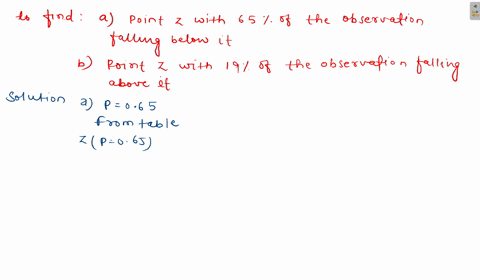 to find : a) Point z with 65% of the observation
falling below it
b) Point z with 19% of the observation falling
above it
Solution a) P = 0.65
from table
z (P = 0.65)